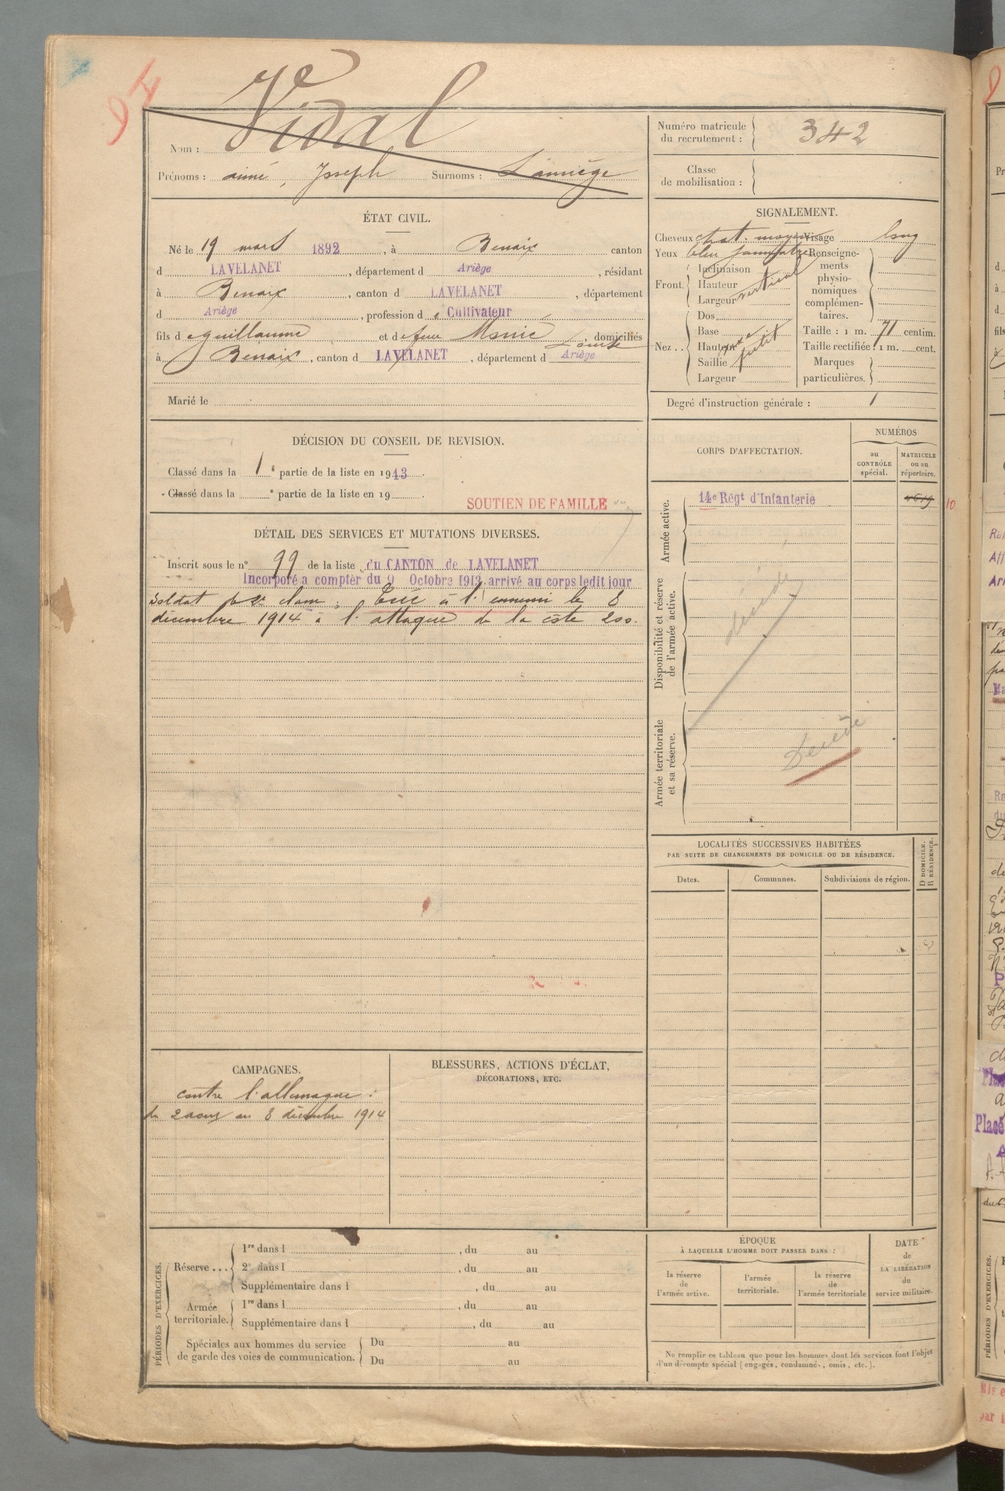 94
Nom : Vidal
Prénoms : aimé, Joseph Surnoms :
Numéro matricule du recrutement : 342
Classe de mobilisation :
ÉTAT CIVIL.
Né le 19 mars 1892, à Benaix canton
d LAVELANET, département d Ariège, résidant
à Benaix, canton d LAVELANET, département
d Ariège, profession d Cultivateur
fils d guillaume et d feue Marie Louise domiciliés
à Benaix, canton d LAVELANET, département d Ariège
Marié le
SIGNALEMENT.
Cheveux chat. moyen Visage long
Yeux bleu
Renseignements physionomiques complémentaires.
Front.
Inclinaison
Hauteur vertical
Largeur
Nez..
Dos
Base
Hauteur petit
Saillie
Largeur
Taille : 1 m. 71 centim.
Taille rectifiée : 1 m. cent.
Marques particulières.
Degré d'instruction générale : 1
DÉCISION DU CONSEIL DE REVISION.
Classé dans la 1e partie de la liste en 1913
Classé dans la e partie de la liste en 19
SOUTIEN DE FAMILLE
DÉTAIL DES SERVICES ET MUTATIONS DIVERSES.
Inscrit sous le n° 99 de la liste du CANTON de LAVELANET
Incorporé à compter du 9 Octobre 1913 arrivé au corps ledit jour
Soldat de 2e classe ; Tué à l'ennemi le 8
décembre 1914 à l'attaque de la côte 200.
CORPS D'AFFECTATION.
NUMÉROS
au CONTRÔLE spécial.
MATRICULE ou au répertoire.
Armée active.
14e Régt d'Infanterie
10
Disponibilité et réserve de l'armée active.
décédé
Armée territoriale et sa réserve.
Décédé
LOCALITÉS SUCCESSIVES HABITÉES
PAR SUITE DE CHANGEMENTS DE DOMICILE OU DE RÉSIDENCE.
Dates.
Communes.
Subdivisions de région.
D DOMICILE.
R RÉSIDENCE.
CAMPAGNES.
contre l'allemagne :
du 2 aout au 8 décembre 1914
BLESSURES, ACTIONS D'ÉCLAT,
DÉCORATIONS, ETC.
PÉRIODES D'EXERCICES.
Réserve ...
1re dans l , du au
2e dans l , du au
Supplémentaire dans l , du au
Armée territoriale.
1re dans l , du au
Supplémentaire dans l , du au
Spéciales aux hommes du service de garde des voies de communication.
Du au
Du au
ÉPOQUE
À LAQUELLE L'HOMME DOIT PASSER DANS :
la réserve de l'armée active.
l'armée territoriale.
la réserve de l'armée territoriale
DATE de LA LIBÉRATION du service militaire.
Ne remplir ce tableau que pour les hommes dont les services font l'objet
d'un décompte spécial (engagés, condamnés, omis, etc.).